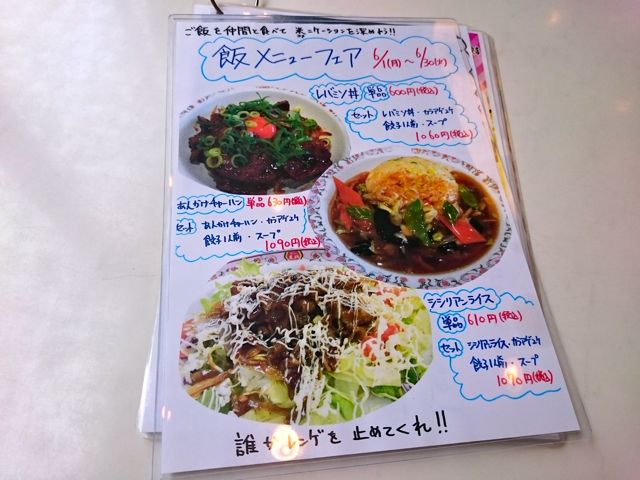 ご飯を仲間と食べてコミュニケーションを深めよう!!
飯メニューフェア 6/1(月)～6/30(火)
レバミソ丼 単品 600円(税込)
セット レバミソ丼・カラアゲ2ケ
餃子1人前・スープ
1060円(税込)
あんかけチャーハン 単品 630円(税込)
セット あんかけチャーハン・カラアゲ2ケ
餃子1人前・スープ
1090円(税込)
シシリアンライス
単品 610円(税込)
セット シシリアンライス・カラアゲ2ケ
餃子1人前・スープ
1070円(税込)
誰かレンゲを止めてくれ!!